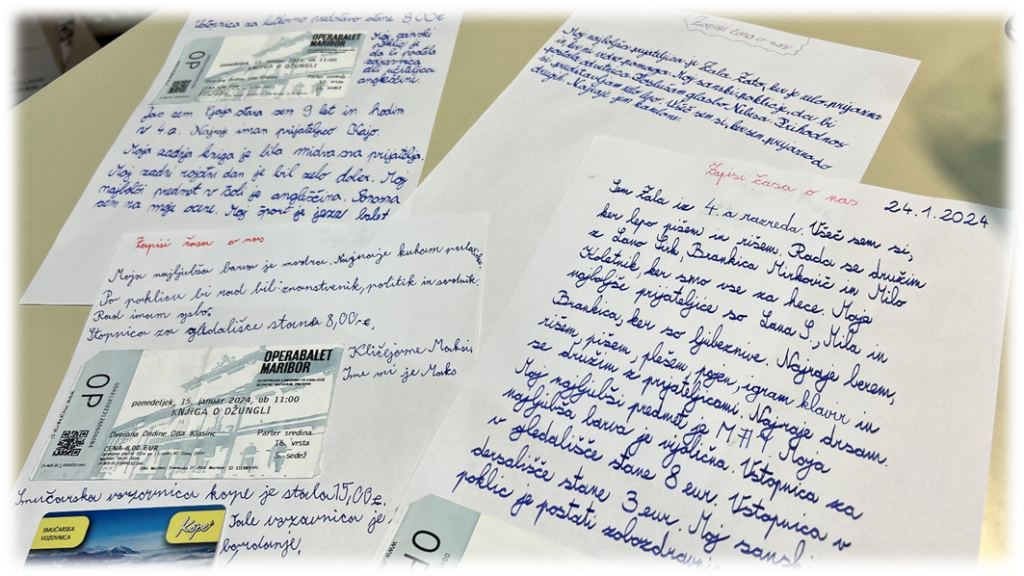 Vstopnica za lutkovno predstavo stane 8,00€
OP
OPERABALET
MARIBOR
KNJIGA O DŽUNGLI
Moj sanjski
poklic je
da bi postala
ali učiteljica
angleščine
Jaz sem stara sem 9 let in hodim
v 4.a. Najraje imam prijateljico Kajo.
Moja zadnja knjiga je bila prijatelja.
Moj zadni rojstni dan je bil zelo dober. Moj
najbolši predmet v šoli je angleščina. Ponosna
sem na moje ocene. Moj šport je jazz balet
Zapisi časa o nas
Moja najljubša barva je modra. Najraje kuham
Po poklicu bi rad bil: znanstvenik, politik in
Rad imam
Stopnica za gledališče stane 8,00€.
OP
OPERABALET
MARIBOR
ponedeljek, 15. januar 2024, ob 11:00
KNJIGA O DŽUNGLI
Dvorana Ondine Otta Klasinc
CENA 8,00 EUR
Parter sredina
16. vrsta
5. sedež
Kličejo me Maksi,
Ime mi je Maks
Smučarska vozovnica kope je stala 15,00€,
SMUČARSKA
VOZOVNICA
Kope
Tale vozavnica je
Zapisi časa o nas
Moj najboljša prijateljica je Zala. Zato, ker je zelo prijazna
in ker mi vedno pomaga. Moj sanski poklic je, da bi
postala Poslušam glasbo Nikisa. Prihodnost
si predstavljam zelo lepo. Všeč sem si, ker sem prijazna do
drugih. Najraje jem
Zapisi časa o nas
24.1.2024
Sem Zala iz 4.a razreda. Všeč sem si,
ker lepo pišem in rišem. Rada se družim
z Lano Sirk, Brankica Mirkovič in Milo
Koletnik, ker smo vse za hece. Moje
najboljše prijateljice so Lana S., Mila in
Brankica, ker so ljubeznive. Najraje berem,
rišem, pišem, plešem, pojem, igram klavir in
se družim z prijateljicami. Najraje drsam.
Moj najljubši predmet je MAT. Moja
najljubša barva je vijolična. Vstopnica za
v gledališče stane 8 eur. Vstopnica v
dersališče stane 3 eur. Moj sanski
poklic je postati
OP